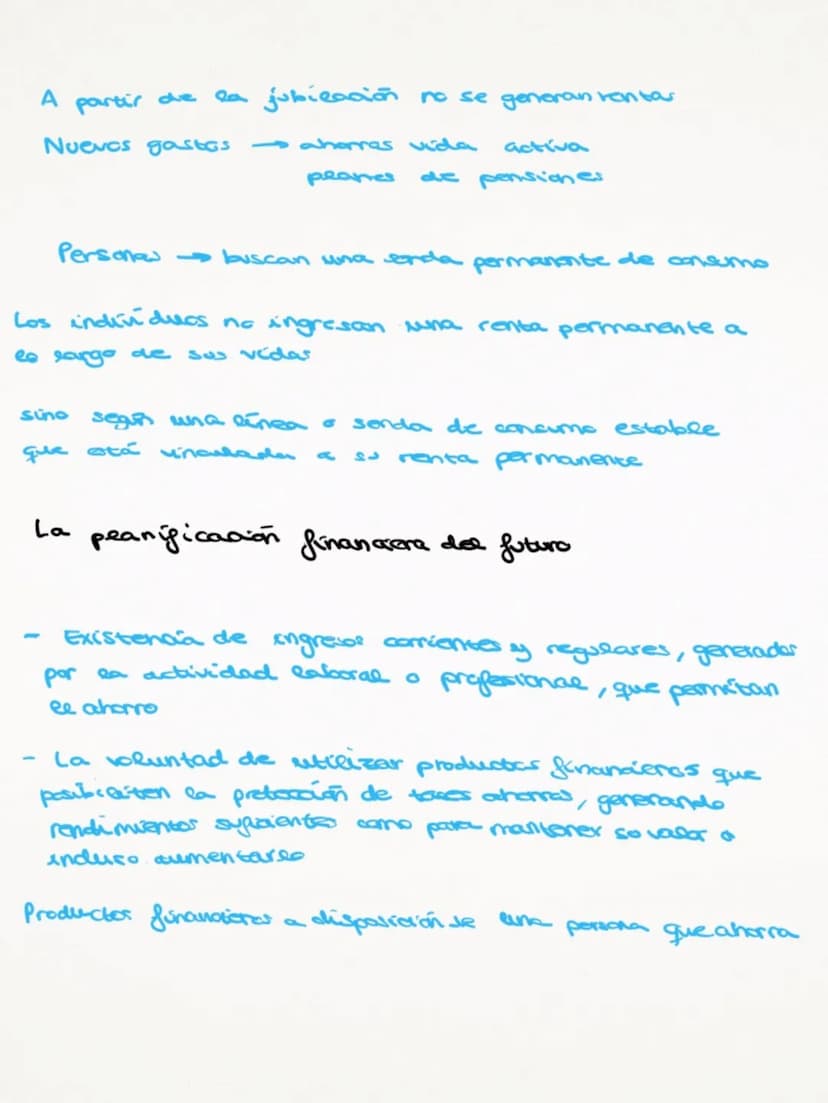 A partir de la jubilación no se generan rentas
Nuevos gastos → ahorras vida activa
planes de pensiones
Personas → buscan una senda permanente de consumo
Los individuos no ingresan una renta permanente a
lo largo de sus vidas
sino según una línea o senda de consumo estable
que está vinculada a su renta permanente
La planificación financiera del futuro
- Existencia de ingresos corrientes y regulares, generados
por la actividad laboral o profesional, que permitan
el ahorro
- La voluntad de utilizar productos financieros que
posibiliten la protección de ahorros, generando
rendimientos suficientes como para mantener su valor o
incluso aumentarlo
Productos financieros a disposición de una persona que ahorra